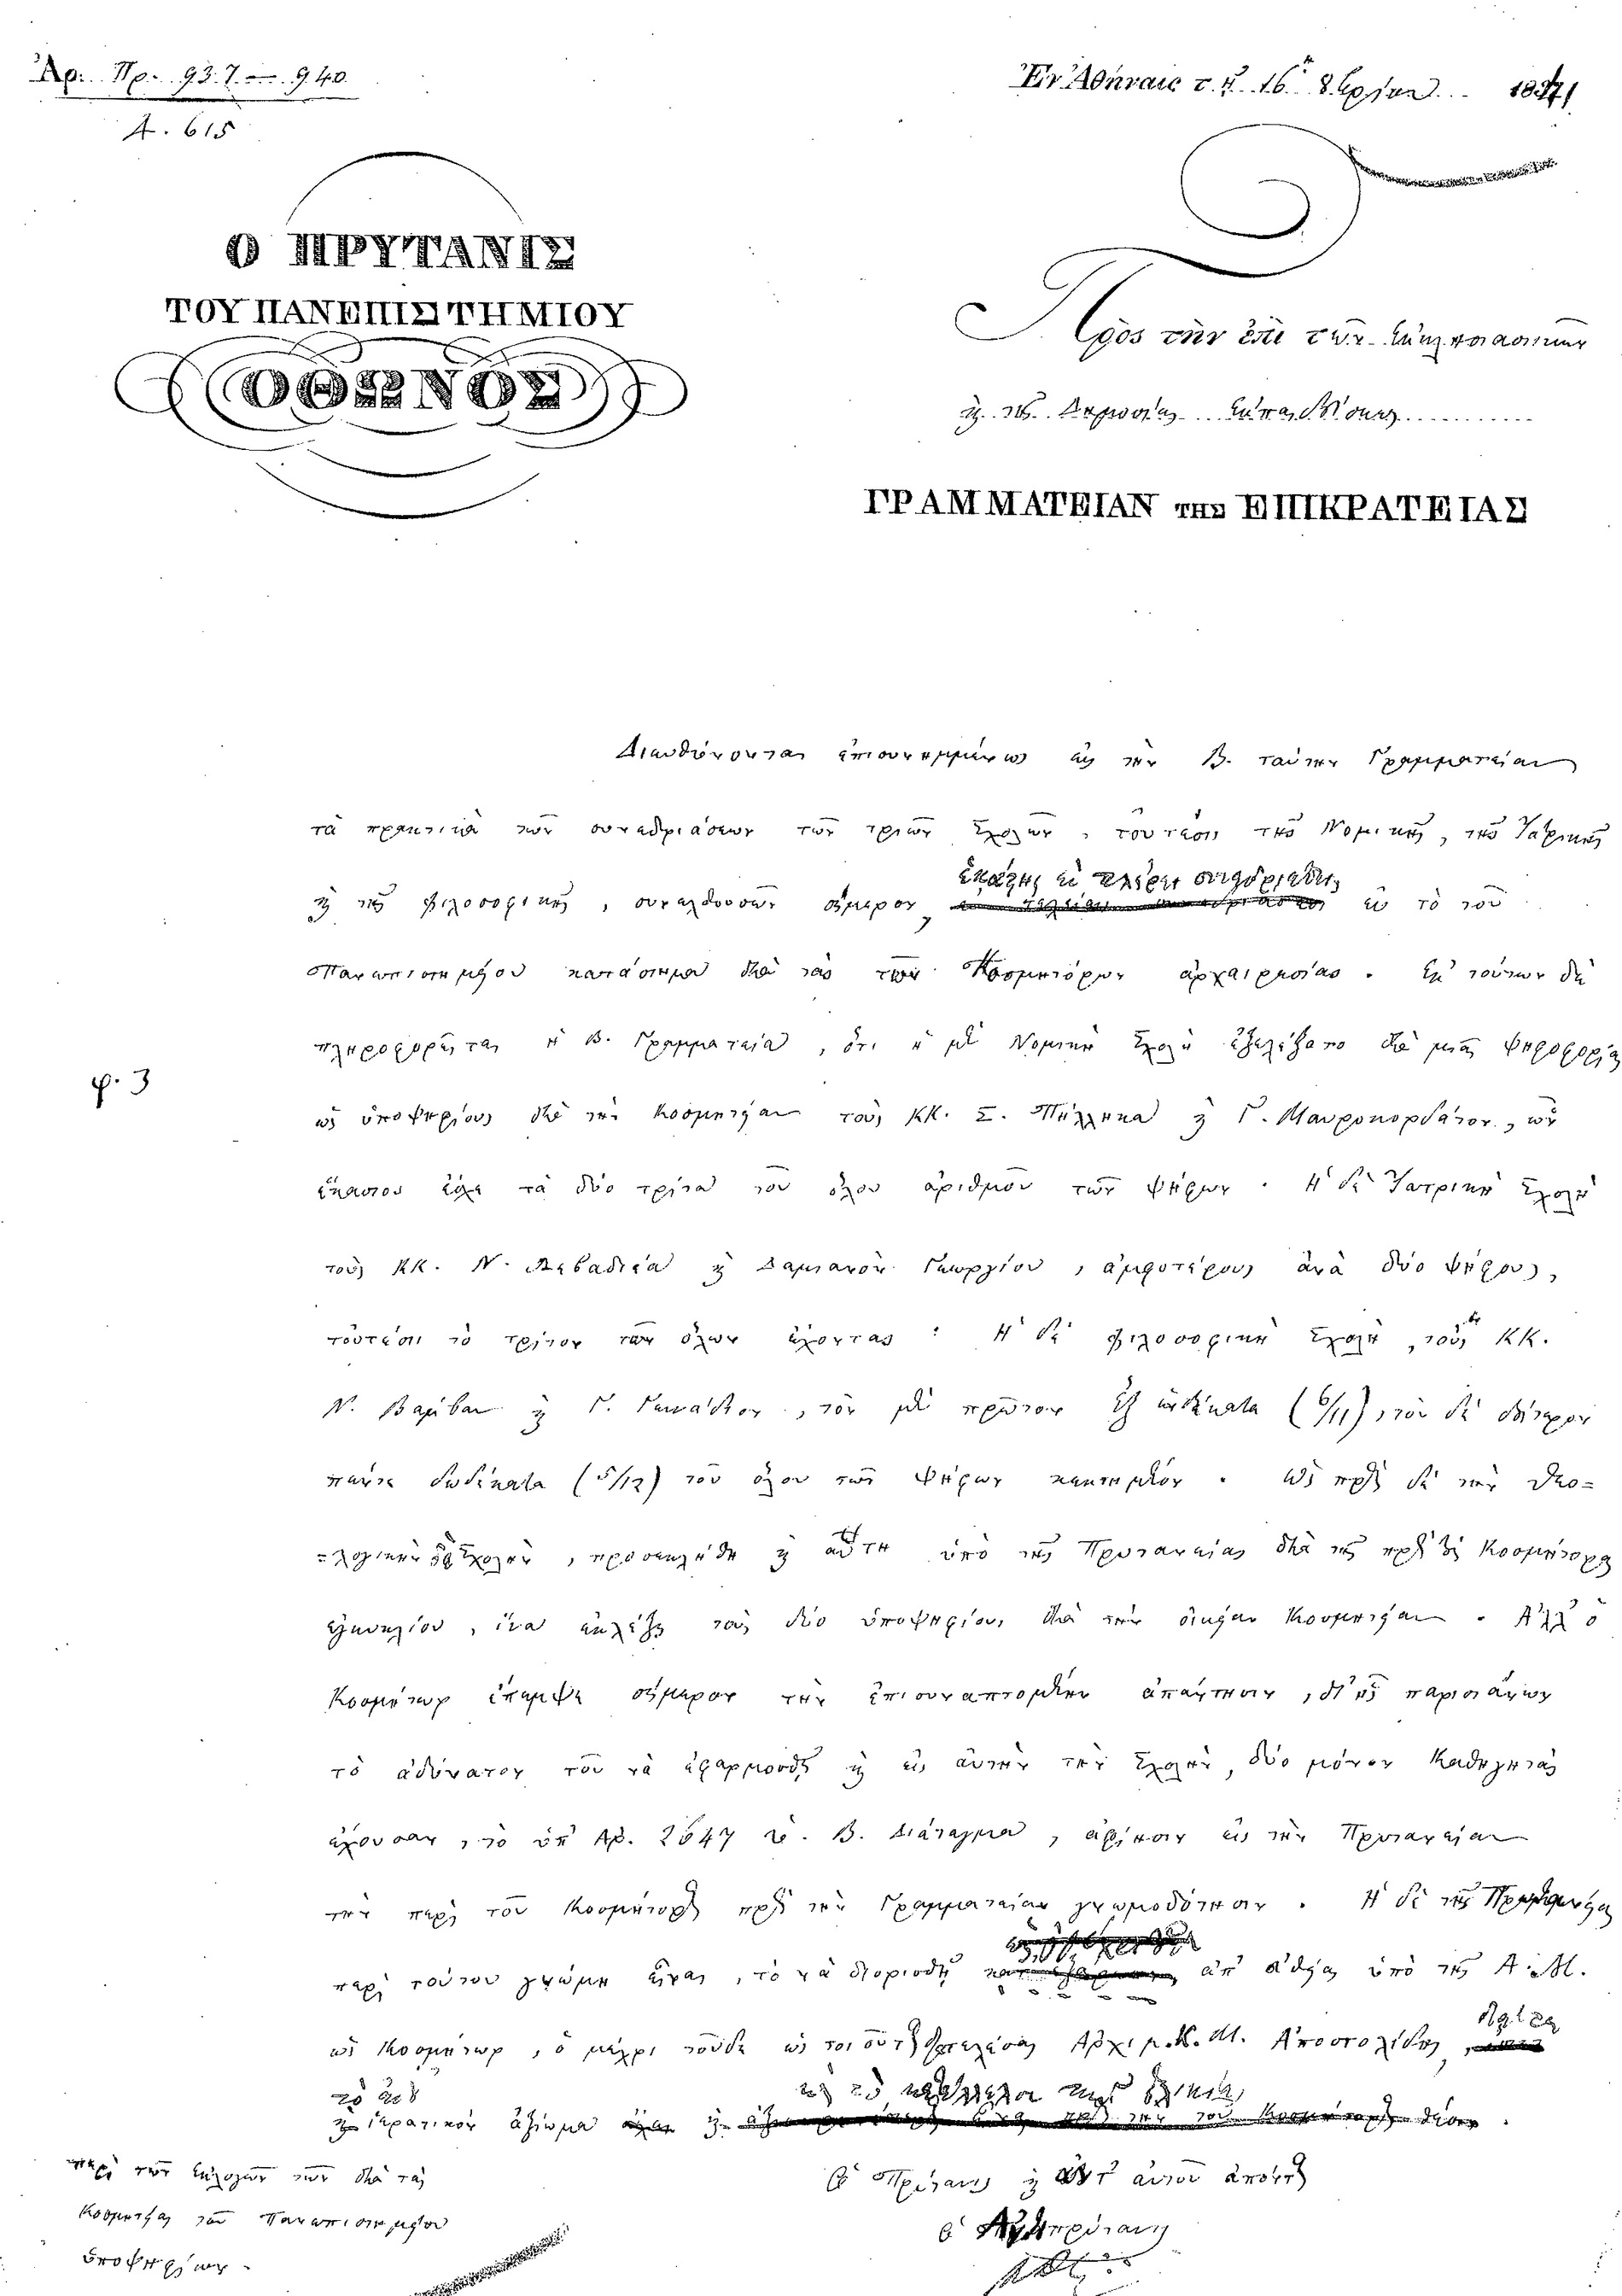 Ἀρ. Πρ. 937 — 940.
Α. 615
Ἐν Ἀθήναις τ. ῇ 16 1841
Ο ΠΡΥΤΑΝΙΣ
ΤΟΥ ΠΑΝΕΠΙΣΤΗΜΙΟΥ
ΟΘΩΝΟΣ
Πρὸς τὴν ἐπὶ τῶν Ἐκκλησιαστικῶν
καὶ τῆς Δημοσίας Ἐκπαιδεύσεως
ΓΡΑΜΜΑΤΕΙΑΝ ΤΗΣ ΕΠΙΚΡΑΤΕΙΑΣ
Διευθύνονται ἐπισυνημμένως εἰς τὴν Β. ταύτην Γραμματείαν
τὰ πρακτικὰ τῶν συνεδριάσεων τῶν τριῶν Σχολῶν, τουτέστι τῆς Νομικῆς, τῆς Ἰατρικῆς
ἑκάστης ἐν πλήρει συνεδριάσει,
καὶ τῆς Φιλοσοφικῆς, συνελθουσῶν σήμερον, εἰς τὸ τοῦ
Πανεπιστημίου κατάστημα διὰ τὰς τῶν Κοσμητόρων ἀρχαιρεσίας. Ἐκ τούτων δὲ
πληροφορεῖται ἡ Β. Γραμματεία, ὅτι ἡ μὲν Νομικὴ Σχολὴ ἐξελέξατο διὰ μιᾶς ψηφοφορίας
φ. 3
ὡς ὑποψηφίους διὰ τὴν Κοσμητείαν τοὺς ΚΚ. Σ. Πήλληκα καὶ Γ. Μαυροκορδάτον, ὧν
ἕκαστος ἔχει τὰ δύο τρίτα τοῦ ὅλου ἀριθμοῦ τῶν ψήφων. Ἡ δὲ Ἰατρικὴ Σχολὴ
τοὺς ΚΚ. Ν. Λεβαδιέα καὶ Δαμιανὸν Γεωργίου, ἀμφοτέρους ἀνὰ δύο ψήφους,
τουτέστι τὸ τρίτον τῶν ὅλων ἔχοντας. Ἡ δὲ Φιλοσοφικὴ Σχολὴ, τοὺς ΚΚ.
Ν. Βάμβαν καὶ Γ. Γεννάδιον, τὸν μὲν πρῶτον ἓξ ἑνδέκατα (6/11), τὸν δὲ δεύτερον
πέντε δωδέκατα (5/12) τοῦ ὅλου τῶν ψήφων κεκτημένον. Ὡς πρὸς δὲ τὴν Θεο=
=λογικὴν Σχολὴν, προσεκλήθη καὶ αὕτη ὑπὸ τῆς Πρυτανείας διὰ τῆς πρὸς τοὺς Κοσμήτορας
ἐγκυκλίου, ἵνα ἐκλέξῃ τοὺς δύο ὑποψηφίους διὰ τὴν οἰκείαν Κοσμητείαν. Ἀλλ' ὁ
Κοσμήτωρ ἔπεμψε σήμερον τὴν ἐπισυναπτομένην ἀπάντησιν, δι' ἧς παριστάνων
τὸ ἀδύνατον τοῦ νὰ ἐφαρμοσθῇ καὶ εἰς αὐτὴν τὴν Σχολὴν, δύο μόνον Καθηγητὰς
ἔχουσαν, τὸ ὑπ' Ἀρ. 2547 Β. Διάταγμα, ἀφίησιν εἰς τὴν Πρυτανείαν
τὴν περὶ τοῦ Κοσμήτορος πρὸς τὴν Γραμματείαν γνωμοδότησιν. Ἡ δὲ τῆς Πρυτανείας
περὶ τούτου γνώμη εἶναι, τὸ νὰ διορισθῇ ἀπ' εὐθείας ὑπὸ τῆς Α. Μ.
ὡς Κοσμήτωρ, ὁ μέχρι τοῦδε ὡς τοιοῦτος διατελέσας Ἀρχιμ. Κ. Μ. Ἀποστολίδης,
καὶ τὰ καθήκοντα
ἱερατικὸν ἀξίωμα
Ὁ Πρύτανις καὶ ἀντ' αὐτοῦ ἀπόντος
ὁ Ἀντιπρύτανις
περὶ τῶν ἐκλογῶν τῶν διὰ τὰς
Κοσμητείας τοῦ Πανεπιστημίου
ὑποψηφίων.